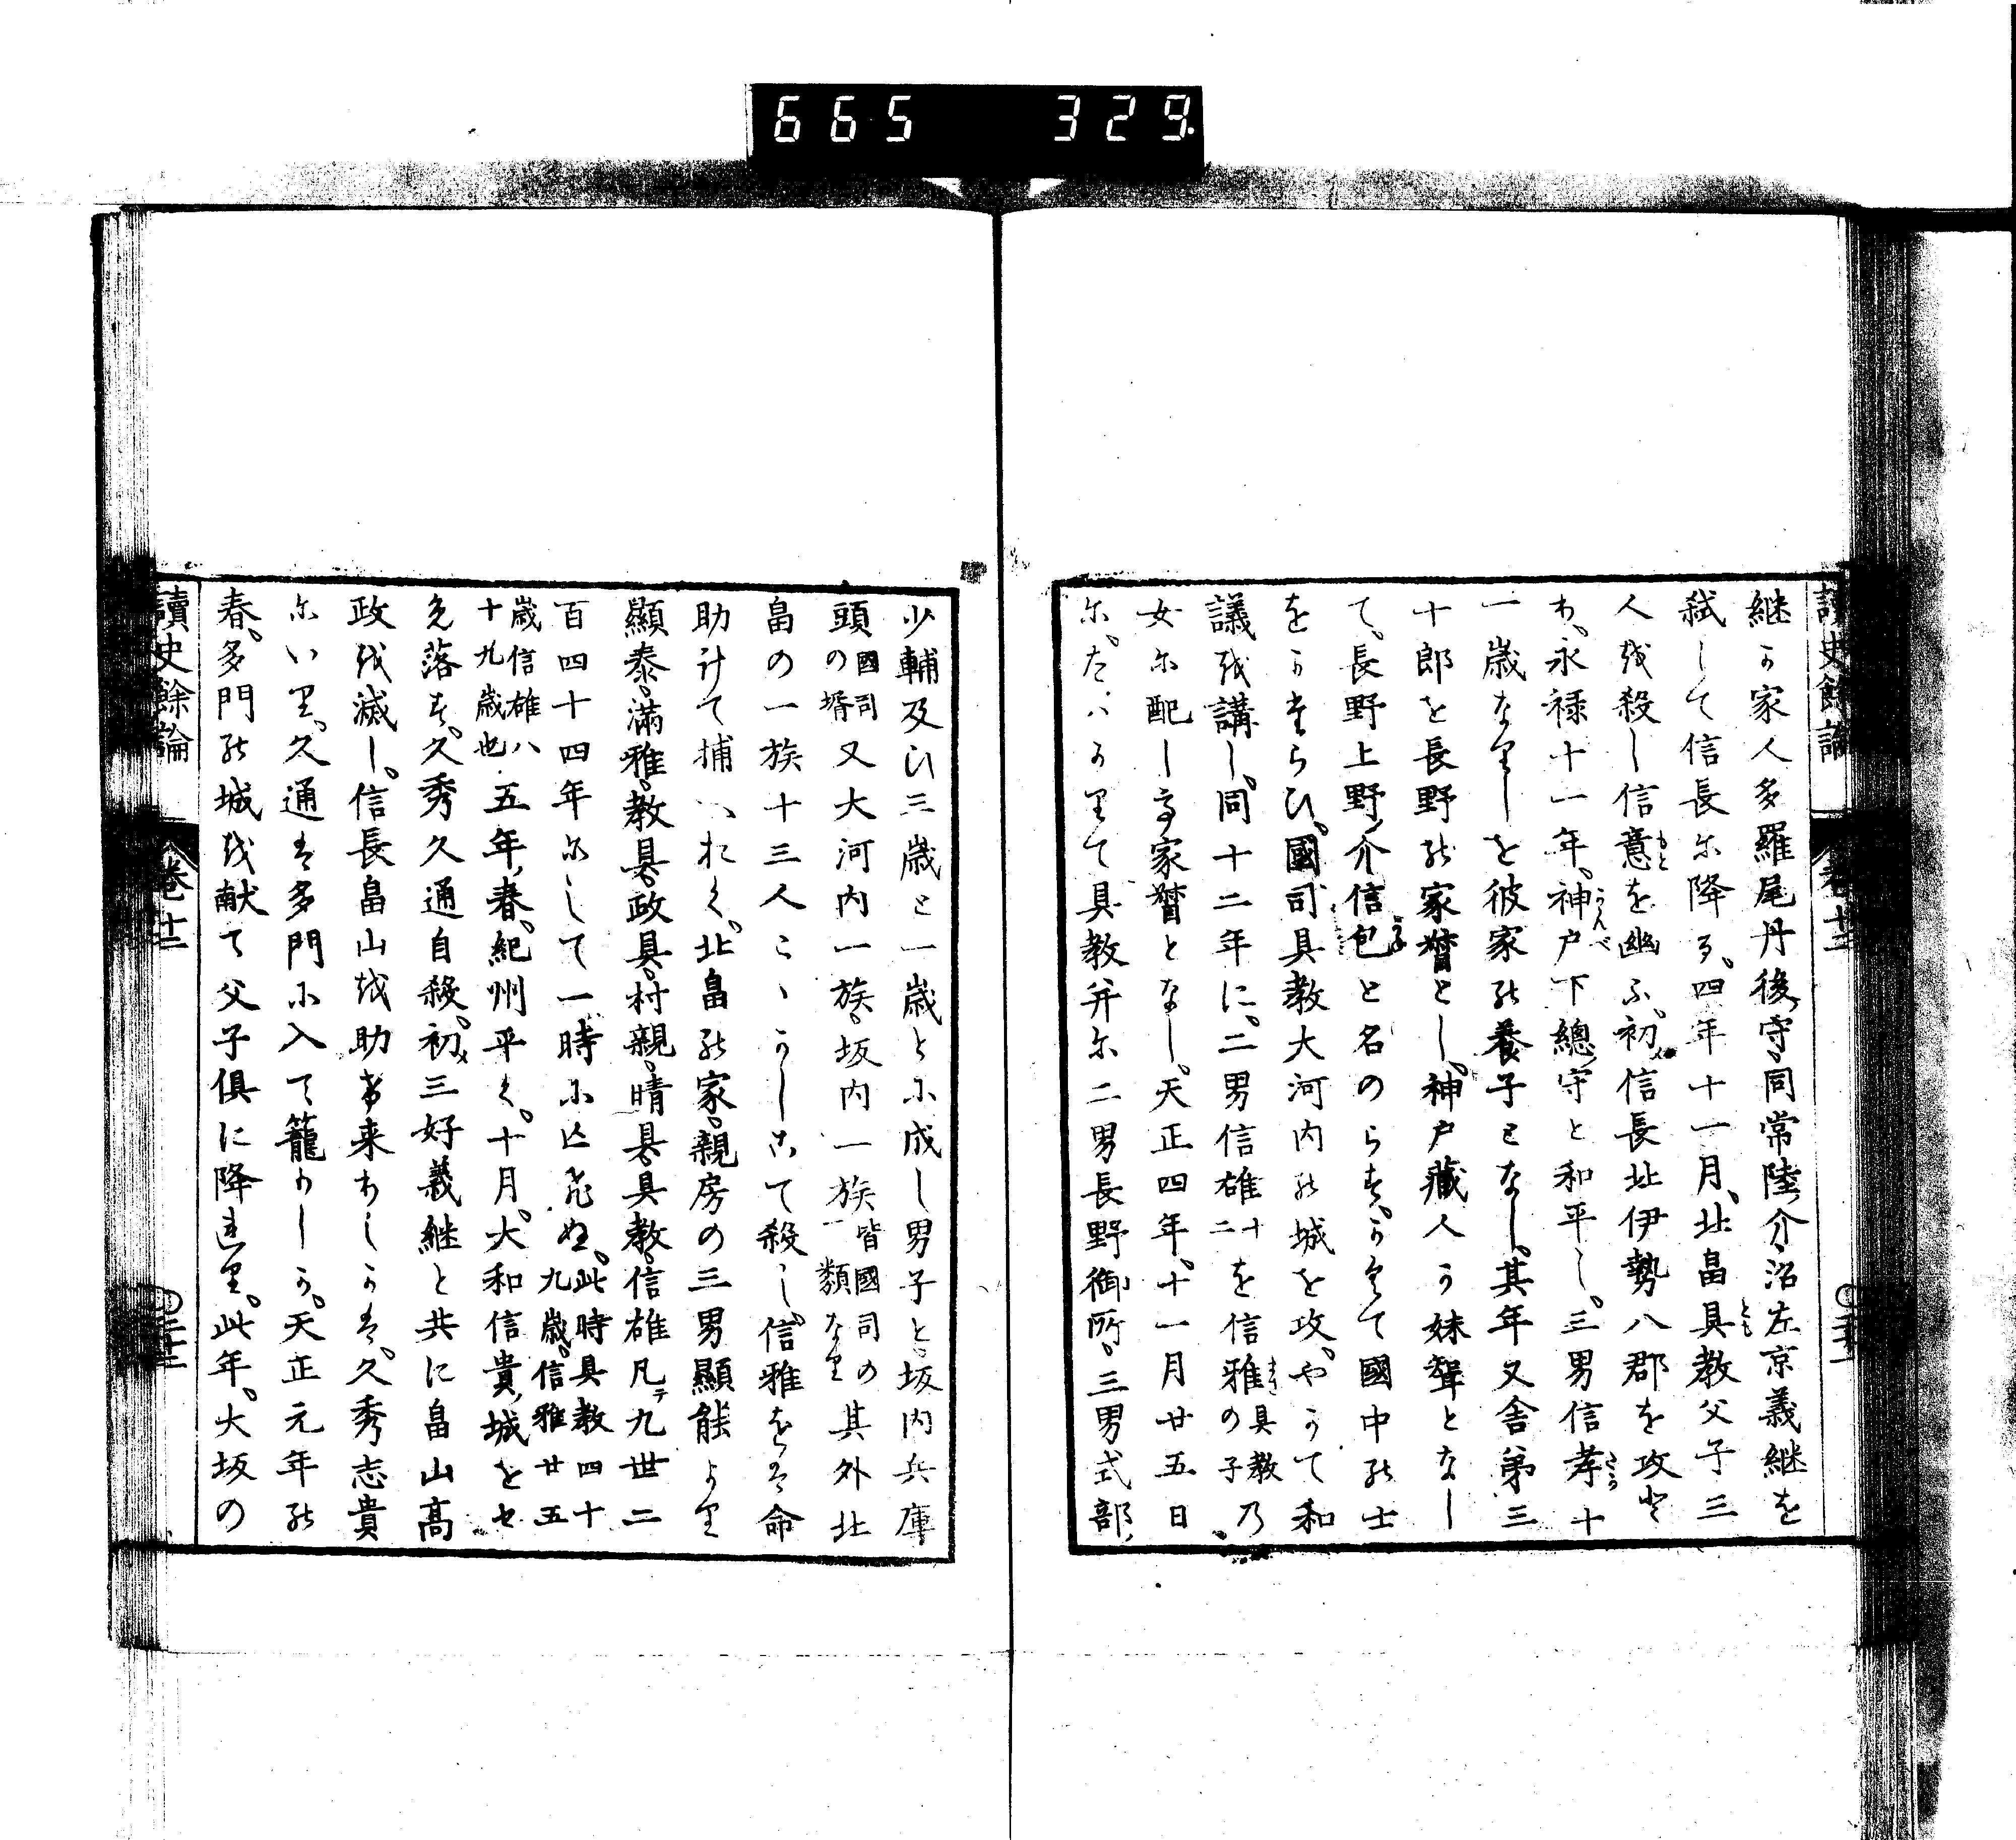 665 329.
讀史餘論 卷十二
継か家人多羅尾丹後ノ守、同常陸ノ介、沼左京義継を
弑して信長に降る。四年十一月、北畠具教父子三
人を殺し信意を幽ふ。初メ信長北伊勢八郡を攻と
わ。永禄十一年。神戸下總ノ守と和平し。三男信孝十
一歳なりしを彼家の養子となし。其年又舎弟三
十郎を長野の家督とし。神戸藏人か妹聟となし
て、長野上野ノ介信包と名のらす。かくて國中の士
をかたらひ。國司具教大河内の城を攻。やかて和
議を講し。同十二年に。二男信雄十二を信雅具教の子乃
女に配し家督となし。天正四年。十一月廿五日。
に。たはかりて具教并に二男長野御所。三男式部ノ
少輔及ひ三歳と一歳とに成し男子と。坂内兵庫
頭國司の壻又大河内一族。坂内一族皆國司の一類なり其外北
畠の一族十三人こゝかしこて殺し。信雅をは命
助けて捕へおく。北畠の家。親房の三男顯能より
顯泰。滿雅。教具。政具。村親。晴具。具教。信雄凡テ九世二
百四十四年にして一時に亡ひぬ。此時具教四十九歳。信雅廿五
歳信雄八十九歳也五年ノ春。紀州平く。十月。大和信貴ノ城をせ
免落す。久秀久通自殺。初メ三好義継と共に畠山高
政を滅し。信長畠山を助け来りしかは。久秀志貴
にいり。久通は多門に入て籠りしか。天正元年の
春。多門の城を献て父子倶に降れり。此年。大坂の
讀史餘論 卷十二